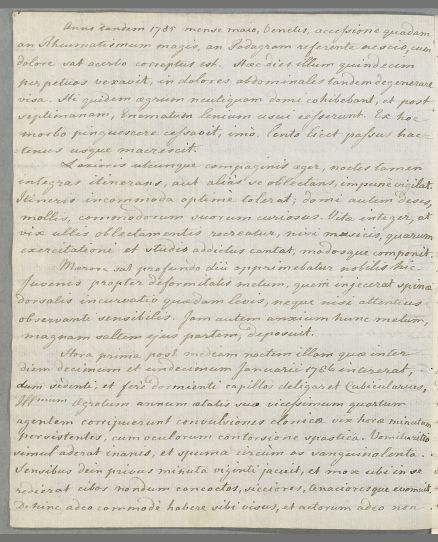 Anno tandem 1785 mense maio, Venetiis, accessione quadam
an Rheumatismum magis, an Podagram referente nescio, cum
dolore sat acerbo correptus est. Haec dies illum quindecim
perpetuos vexavit, in dolores abdominales tandem degenerare
visa. Hi quidem aegrum neutiquam domi cohibebant, et post
septimanam, Enematum lenium usui cesserunt. Ex hoc
morbo pinguescere cessavit, imo, lento licet passu hac-
tenus usque macrescit.
Laxioris utcunque compaginis aeger, noctes tamen
integras itinerans, aut alias se oblectans, impune vigilat.
Itineris incommoda optime tolerat; domi autem deses,
mollis, commodorum suorum curiosus. Vita integer, at
vix ullis oblectamentis recreatur, nisi musicis, quarum
exercitationi et studio addictus cantat, modosque componit.
Moerore sat profundo diu opprimebatur nobilis hic
Juvenis propter deformitatis metum, quem injecerat spinae
dorsalis incurvatio quaedam levis, neque nisi attentius
observanti sensibilis. Jam autem anxium hunc metum,
magnam saltem ejus partem, deposuit.
Hora prima post mediam noctem illam quae inter
diem decimum et undecimum Januarii 1786 intererat,
dum sedenti, et fere dormienti capillos deligaret Cubicularius,
Illmum Aegrotum annum aetatis suae vicessimum quartum
agentem corripuerunt convulsiones clonicae vix horae minutum
persistentes, cum oculorum contorsione spastica. Vomituratio
simul aderat inanis, et spuma circum os sanguinolenta.
Sensibus dein privus minuta viginti jacuit, et mox ubi in se
redierat cibos nondum concoctos, sicciores, tenacioresque evomuit.
De hinc adeo commode habere sibi visus, et actorum adeo non